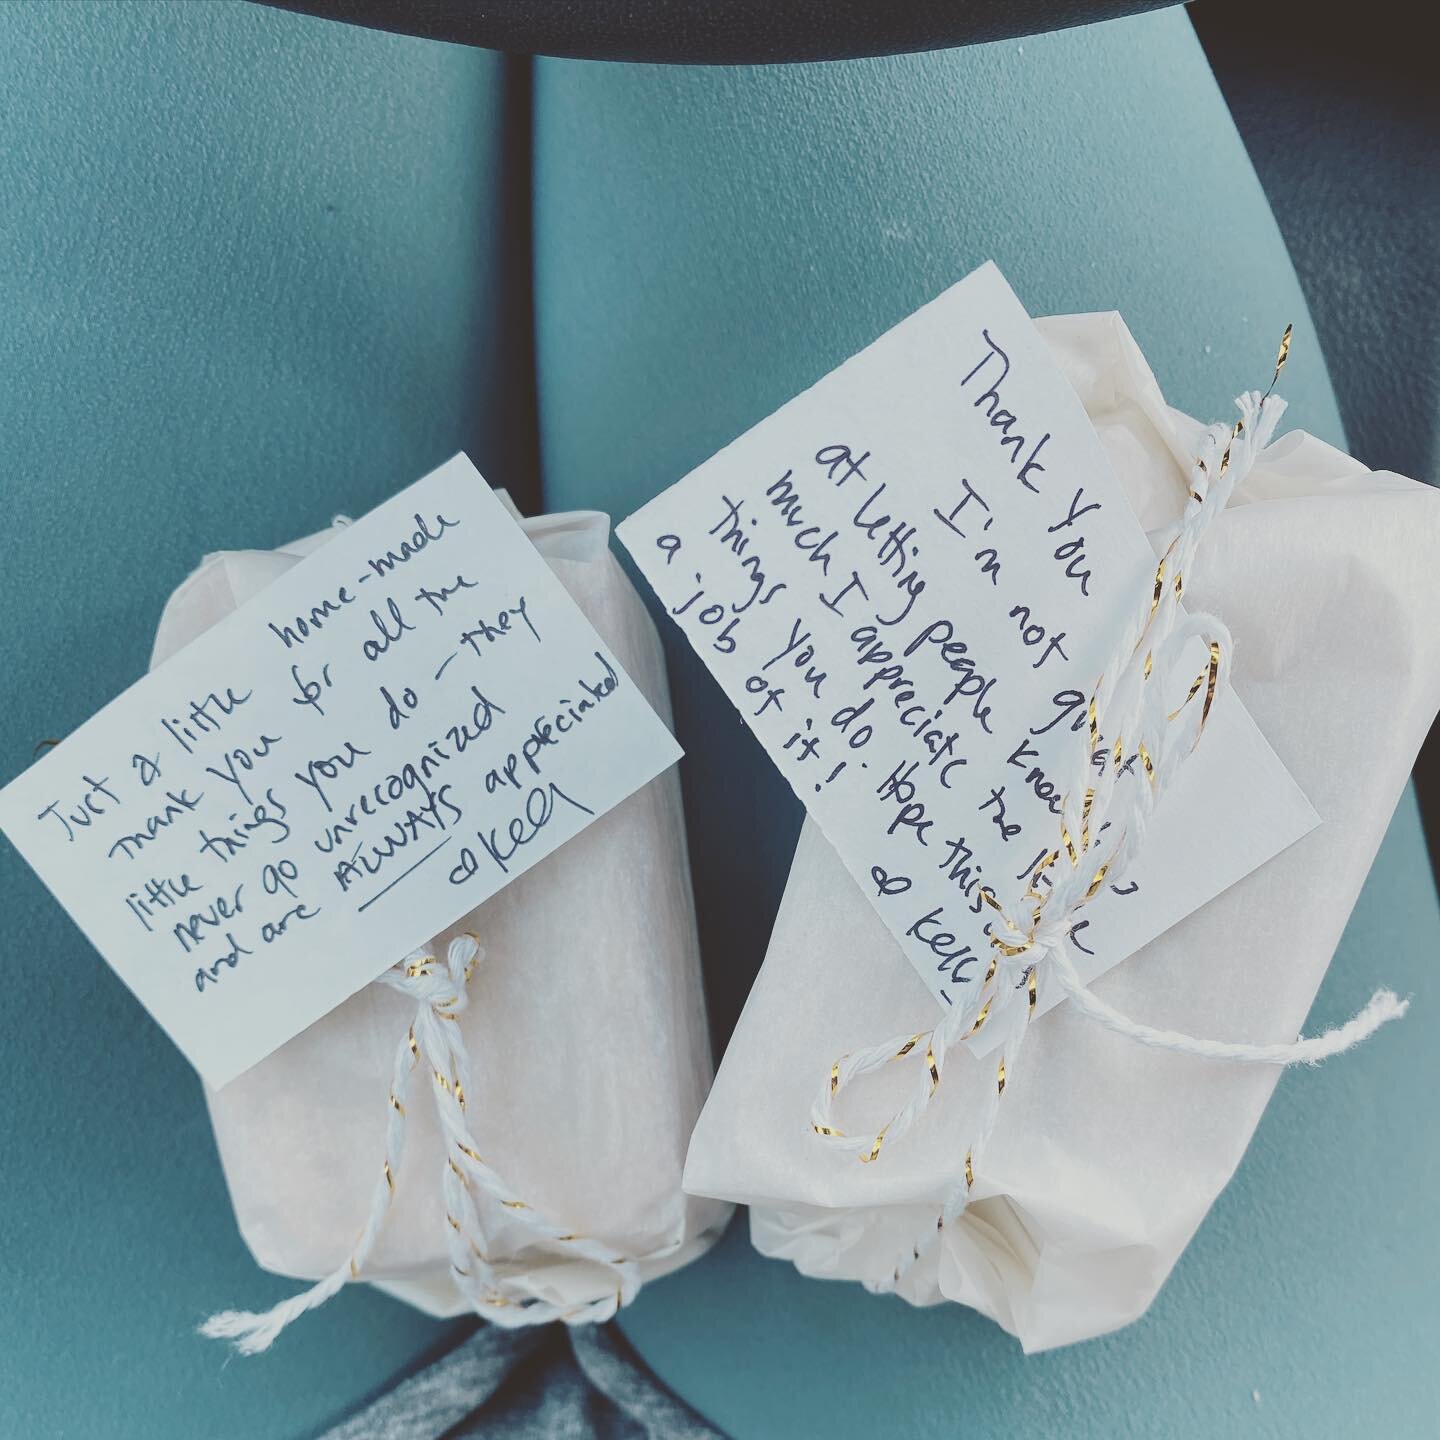 Just a little home-made
thank you for all the
little things you do - they
never go unrecognized
and are ALWAYS appreciated
Kelly
Thank you
I'm not great
at letting people know
much I appreciate the little
things you do. Hope this
a job of it!
Kelly